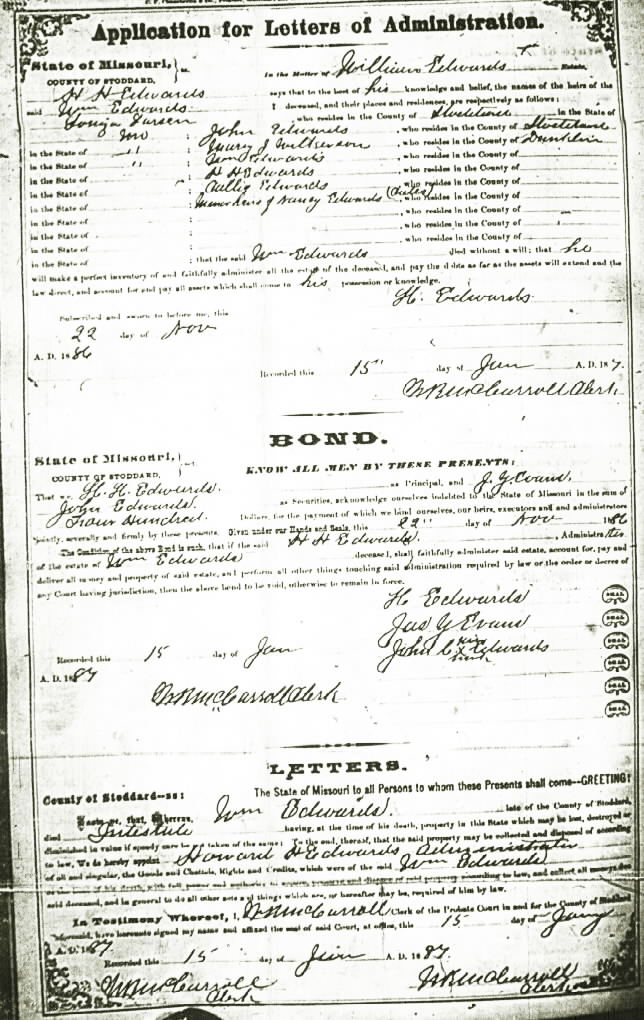 Application for Letters of Administration.
State of Missouri,
COUNTY OF STODDARD, ss.
In the Matter of William Edwards Estate,
H H Edwards says that to the best of his knowledge and belief, the names of the heirs of the
said Wm Edwards deceased, and their places and residences, are respectively as follows:
who resides in the County of Stoddard in the State of
Mo ; John Edwards, who resides in the County of Stoddard
in the State of " ; Mary J Wilkerson, who resides in the County of Dunklin
in the State of " ; Wm Edwards, who resides in the County of
in the State of ; H H Edwards, who resides in the County of
in the State of ; Edwards, who resides in the County of
in the State of ; Nancy Edwards, who resides in the County of
in the State of ; who resides in the County of
in the State of ; who resides in the County of
in the State of ; who resides in the County of
in the State of ; that the said Wm Edwards died without a will; that he
will make a perfect inventory of and faithfully administer all the estate of the deceased, and pay the debts as far as the assets will extend and the
law direct, and account for and pay all assets which shall come to his possession or knowledge.
H. Edwards
Subscribed and sworn to before me, this
22 day of Nov
A. D. 1886
Recorded this 15" day of Jan A. D. 187.
W R McCarroll Clerk
BOND.
State of Missouri,
COUNTY OF STODDARD,
KNOW ALL MEN BY THESE PRESENTS:
That we H. H. Edwards. as Principal, and J. Y Evans.
John Edwards. as Securities, acknowledge ourselves indebted to the State of Missouri in the sum of
Four Hundred. Dollars, for the payment of which we bind ourselves, our heirs, executors and administrators
jointly, severally and firmly by these presents. Given under our Hands and Seals, this 22" day of Nov 1886
The Condition of the above Bond is such, that if the said H H Edwards. , Administrator
of the estate of Wm Edwards deceased, shall faithfully administer said estate, account for, pay and
deliver all money and property of said estate, and perform all other things touching said administration required by law or the order or decree of
any Court having jurisdiction, then the above bond to be void, otherwise to remain in force.
H Edwards SEAL
Jas Y Evans SEAL
John C his x mark Edwards SEAL
SEAL
Recorded this 15 day of Jan
A. D. 1887
SEAL
W R McCarroll Clerk
SEAL
LETTERS.
County of Stoddard--ss:
The State of Missouri to all Persons to whom these Presents shall come--GREETING:
Know ye, that, Whereas, Wm Edwards. late of the County of Stoddard,
died Intestate having, at the time of his death, property in this State which may be lost, destroyed or
diminished in value if speedy care be not taken of the same: To the end, therefore, that the said property may be collected and disposed of according
to law, We do hereby appoint Howard H Edwards Administrator
of all and singular, the Goods and Chattels, Rights and Credits, which were of the said Wm Edwards
at the time of his death, with full power and authority to secure, preserve and dispose of said property according to law, and collect all moneys due
said deceased, and in general to do all other acts and things which are, or hereafter may be, required of him by law.
In Testimony Whereof, I, W R McCarroll Clerk of the Probate Court in and for the County of Stoddard
aforesaid, have hereunto signed my name and affixed the seal of said Court, at office, this 15 day of Jany
A. D. 187.
Recorded this 15 day of Jan A. D. 1887
W R McCarroll
Clerk
W R McCarroll
Clerk